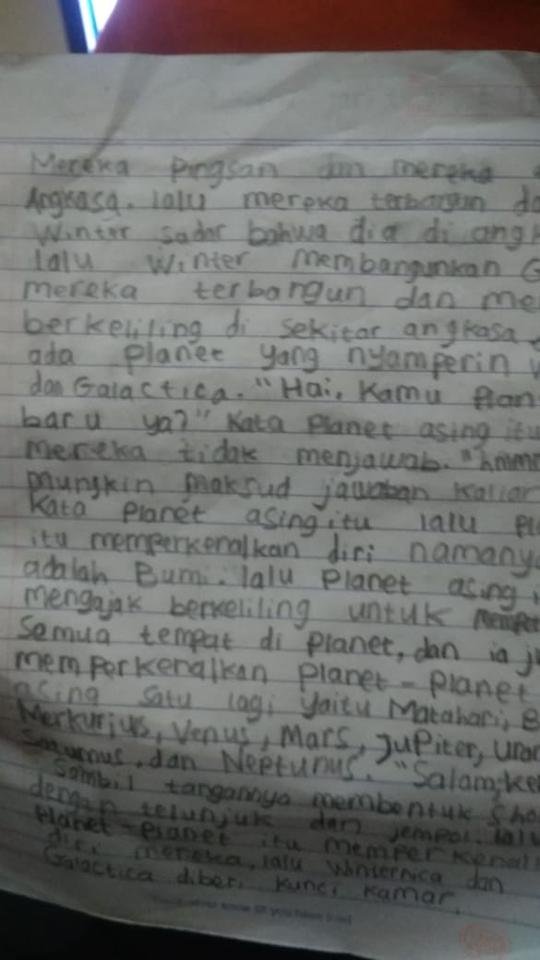 Mereka pingsan dan mereka
Angkasa. lalu mereka terbangun
Winter sadar bahwa dia di
lalu Winter membangunkan
mereka terbangun dan
berkeliling di sekitar angkasa
ada planet yang nyamperin
dan Galactica. "Hai, Kamu
baru ya?" Kata Planet asing itu
mereka tidak menjawab. "hmm
mungkin maksud jawaban
Kata Planet asing itu lalu
itu memperkenalkan diri namanya
adalah Bumi. lalu Planet asing
mengajak berkeliling untuk
Semua tempat di Planet, dan ia
memperkenalkan Planet-Planet
asing satu lagi yaitu Matahari,
Merkurius, Venus, Mars, Jupiter,
Saturnus, dan Neptunus. "Salam
Sambil tangannya membentuk
dengan telunjuk dan jempol. lalu
Planet-Planet itu
diri mereka, lalu Winternica dan
Galactica diberi kunci kamar.